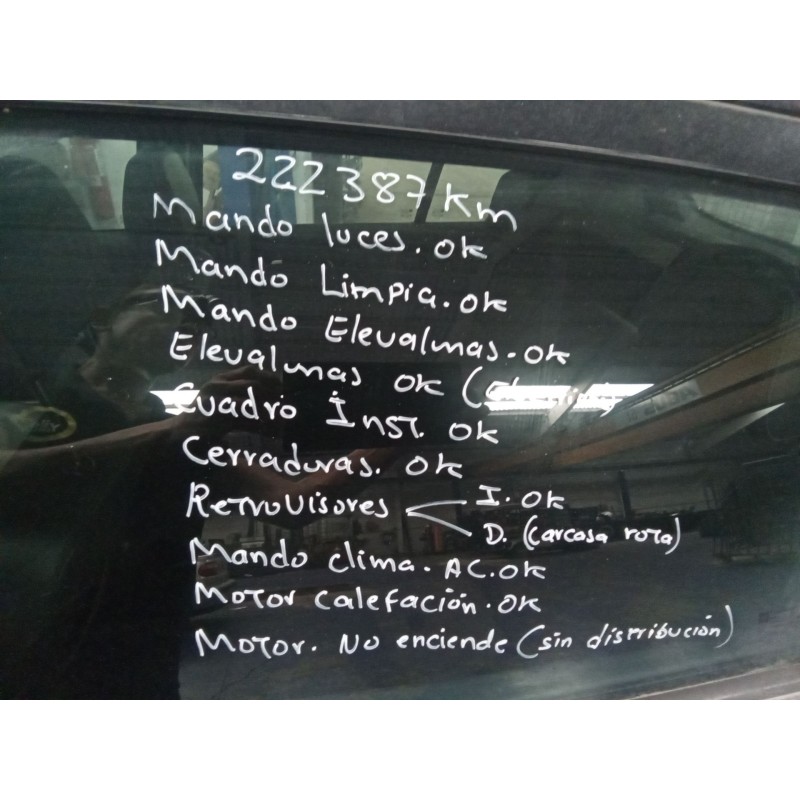 222387 Km
Mando luces. OK
Mando Limpia. OK
Mando Elevalunas. OK
Elevalunas OK (
Cuadro Inst. OK
Cerraduras. OK
Retrovisores I. OK
D. (carcasa rota)
Mando clima. AC. OK
Motor calefación. OK
Motor. No enciende (sin distribución)